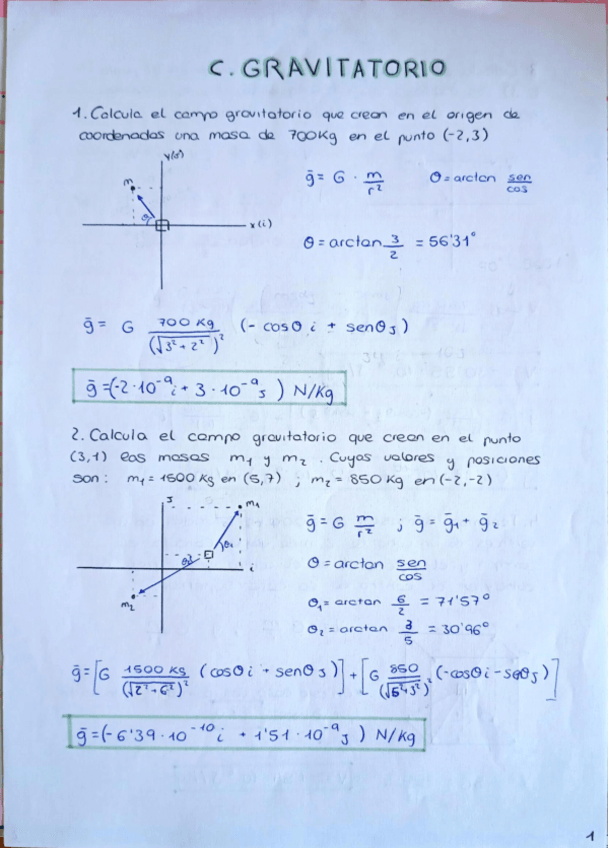 C. GRAVITATORIO
1. Calcula el campo gravitatorio que crean en el origen de
coordenadas una masa de 700Kg en el punto (-2,3)
y(j)
m
θ
x(i)
ḡ = G · m/r²   θ = arctan sen/cos
θ = arctan 3/2 = 56'31°
ḡ = G 700 Kg/(√3²+2²)² (- cosθ i + senθ j)
ḡ = (-2·10⁻⁹ i + 3·10⁻⁹ j) N/Kg
2. Calcula el campo gravitatorio que crean en el punto
(3,1) las masas m₁ y m₂. Cuyos valores y posiciones
son: m₁ = 1500 Kg en (5,7) ; m₂ = 850 Kg en (-2,-2)
j
m₁
θ₁
θ₂
i
m₂
ḡ = G m/r² ; ḡ = ḡ₁ + ḡ₂
θ = arctan sen/cos
θ₁ = arctan 6/2 = 71'57°
θ₂ = arctan 3/5 = 30'96°
ḡ = [G 1500 Kg/(√2²+6²)² (cosθ i + senθ j)] + [G 850/(√5²+3²)² (-cosθ i - senθ j)]
ḡ = (-6'39·10⁻¹⁰ i + 1'51·10⁻⁹ j) N/Kg
1